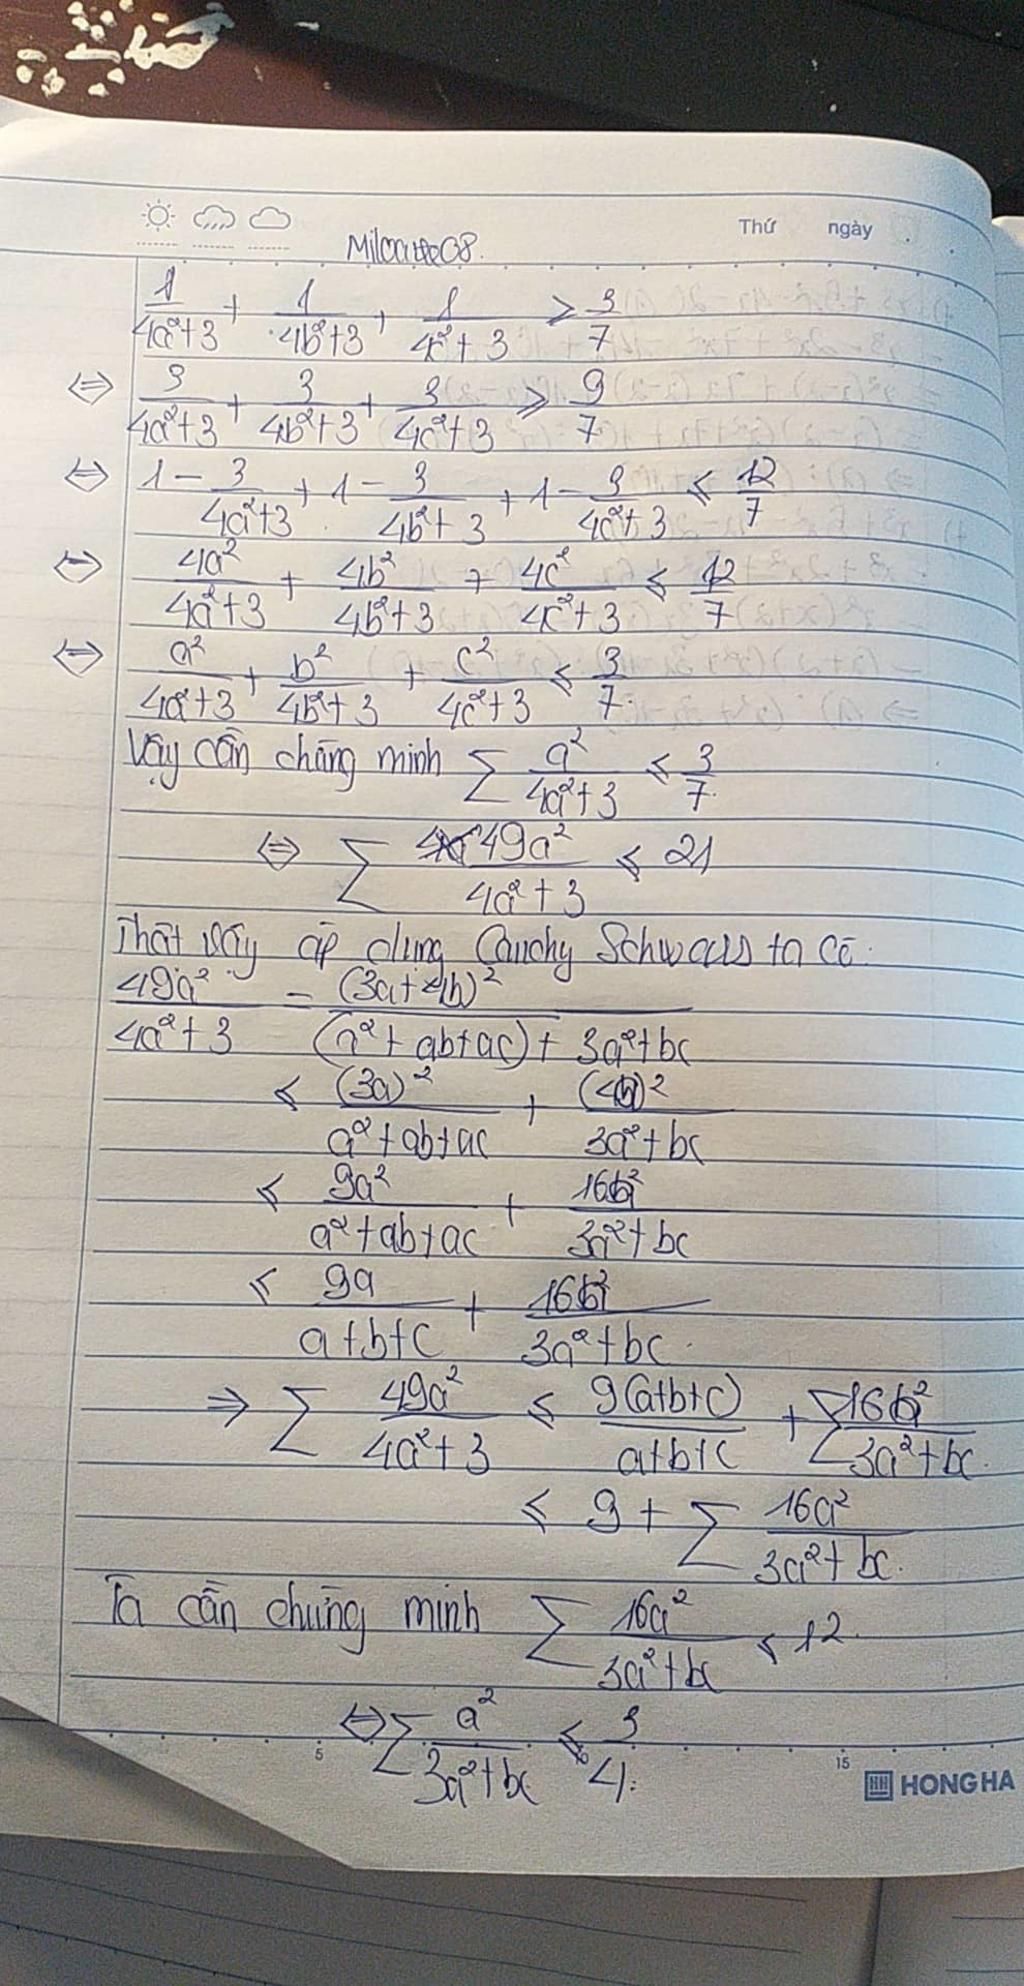 Thứ ngày
1/(4a²+3) + 1/(4b²+3) + 1/(4c²+3) ≥ 3/7
⇔ 3/(4a²+3) + 3/(4b²+3) + 3/(4c²+3) ≥ 9/7
⇔ 1 - 3/(4a²+3) + 1 - 3/(4b²+3) + 1 - 3/(4c²+3) ≤ 12/7
⇔ 4a²/(4a²+3) + 4b²/(4b²+3) + 4c²/(4c²+3) ≤ 12/7
⇔ a²/(4a²+3) + b²/(4b²+3) + c²/(4c²+3) ≤ 3/7.
Vậy cần chứng minh ∑ a²/(4a²+3) ≤ 3/7.
⇔ ∑ 49a²/(4a²+3) ≤ 21
Thật vậy áp dụng Cauchy Schwarz ta có:
49a²/(4a²+3) = (3a+4a)²/((a²+ab+ac) + 3a²+bc)
≤ (3a)²/(a²+ab+ac) + (4a)²/(3a²+bc)
≤ 9a²/(a²+ab+ac) + 16a²/(3a²+bc)
≤ 9a/(a+b+c) + 16a²/(3a²+bc).
⇒ ∑ 49a²/(4a²+3) ≤ 9(a+b+c)/(a+b+c) + ∑ 16a²/(3a²+bc).
≤ 9 + ∑ 16a²/(3a²+bc).
Ta cần chứng minh ∑ 16a²/(3a²+bc) ≤ 12.
⇔ ∑ a²/(3a²+bc) ≤ 3/4.
5 15
HONG HA